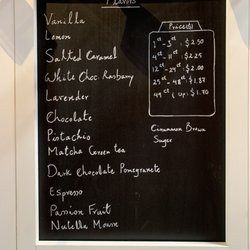 Flavors
Vanilla
Lemon
Salted Caramel
White Choc Raspberry
Lavender
Chocolate
Pistachio
Matcha Green tea
Dark Chocolate Pomegranete
Espresso
Passion Fruit
Nutella Mousse
Price(s)
1st - 3rd : $2.50
4st - 11st : $2.25
12st - 24st : $2.00
25st - 48st : $1.87
49st & Up : $1.70
Cinnamon Brown
Sugar